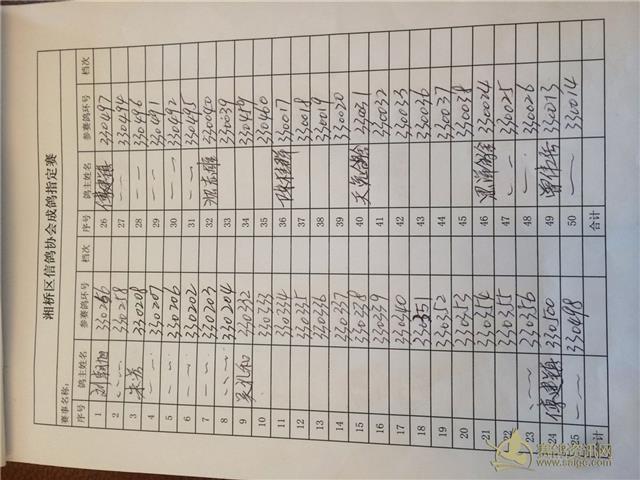 湘桥区信鸽协会成鸽指定赛
赛事名称:
序号 鸽主姓名 参赛鸽环号 档次 序号 鸽主姓名 参赛鸽环号 档次
1 330266 26 330497
2 330258 27 330494
3 330208 28 330496
4 330207 29 330491
5 330206 30 330492
6 330202 31 330495
7 330203 32 330040
8 330204 33 330039
9 330332 34 330459
10 330333 35 330460
11 330334 36 330017
12 330335 37 330018
13 330336 38 330019
14 330337 39 330020
15 330338 40 330031
16 330339 41 330032
17 330340 42 330033
18 330351 43 330036
19 330352 44 330037
20 330353 45 330038
21 330354 46 330024
22 330355 47 330025
23 330356 48 330026
24 330500 49 330013
25 330498 50 330014
合计 合计
www.saige.com